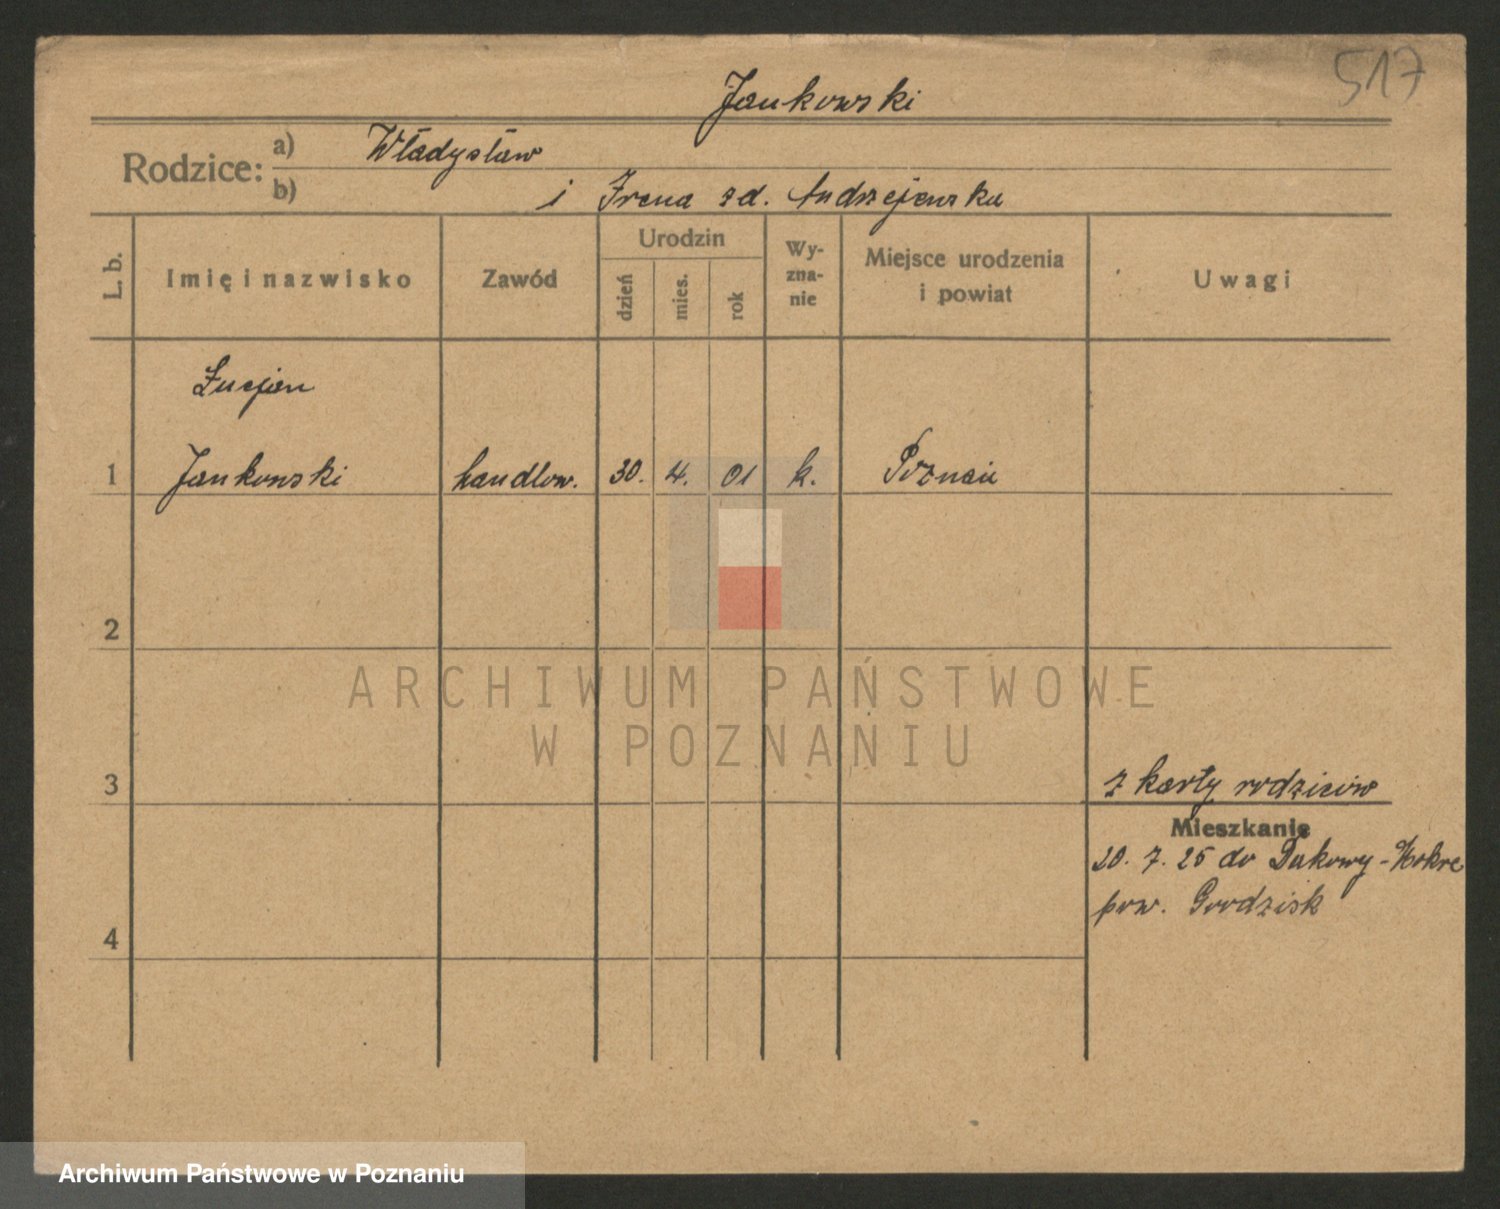 517
Jankowski
Rodzice: a) Władysław
b) i Irena zd. Andrzejewska
L. b.
Imię i nazwisko
Zawód
Urodzin
dzień
mies.
rok
Wy-
zna-
nie
Miejsce urodzenia
i powiat
Uwagi
Łucjan
1 Jankowski handlow. 30. 4. 01 k. Poznań
2
ARCHIWUM PAŃSTWOWE
W POZNANIU
3 z karty rodziców
Mieszkanie
20. 7. 25 do Dakowy-Mokre
pow. Grodzisk
4
Archiwum Państwowe w Poznaniu